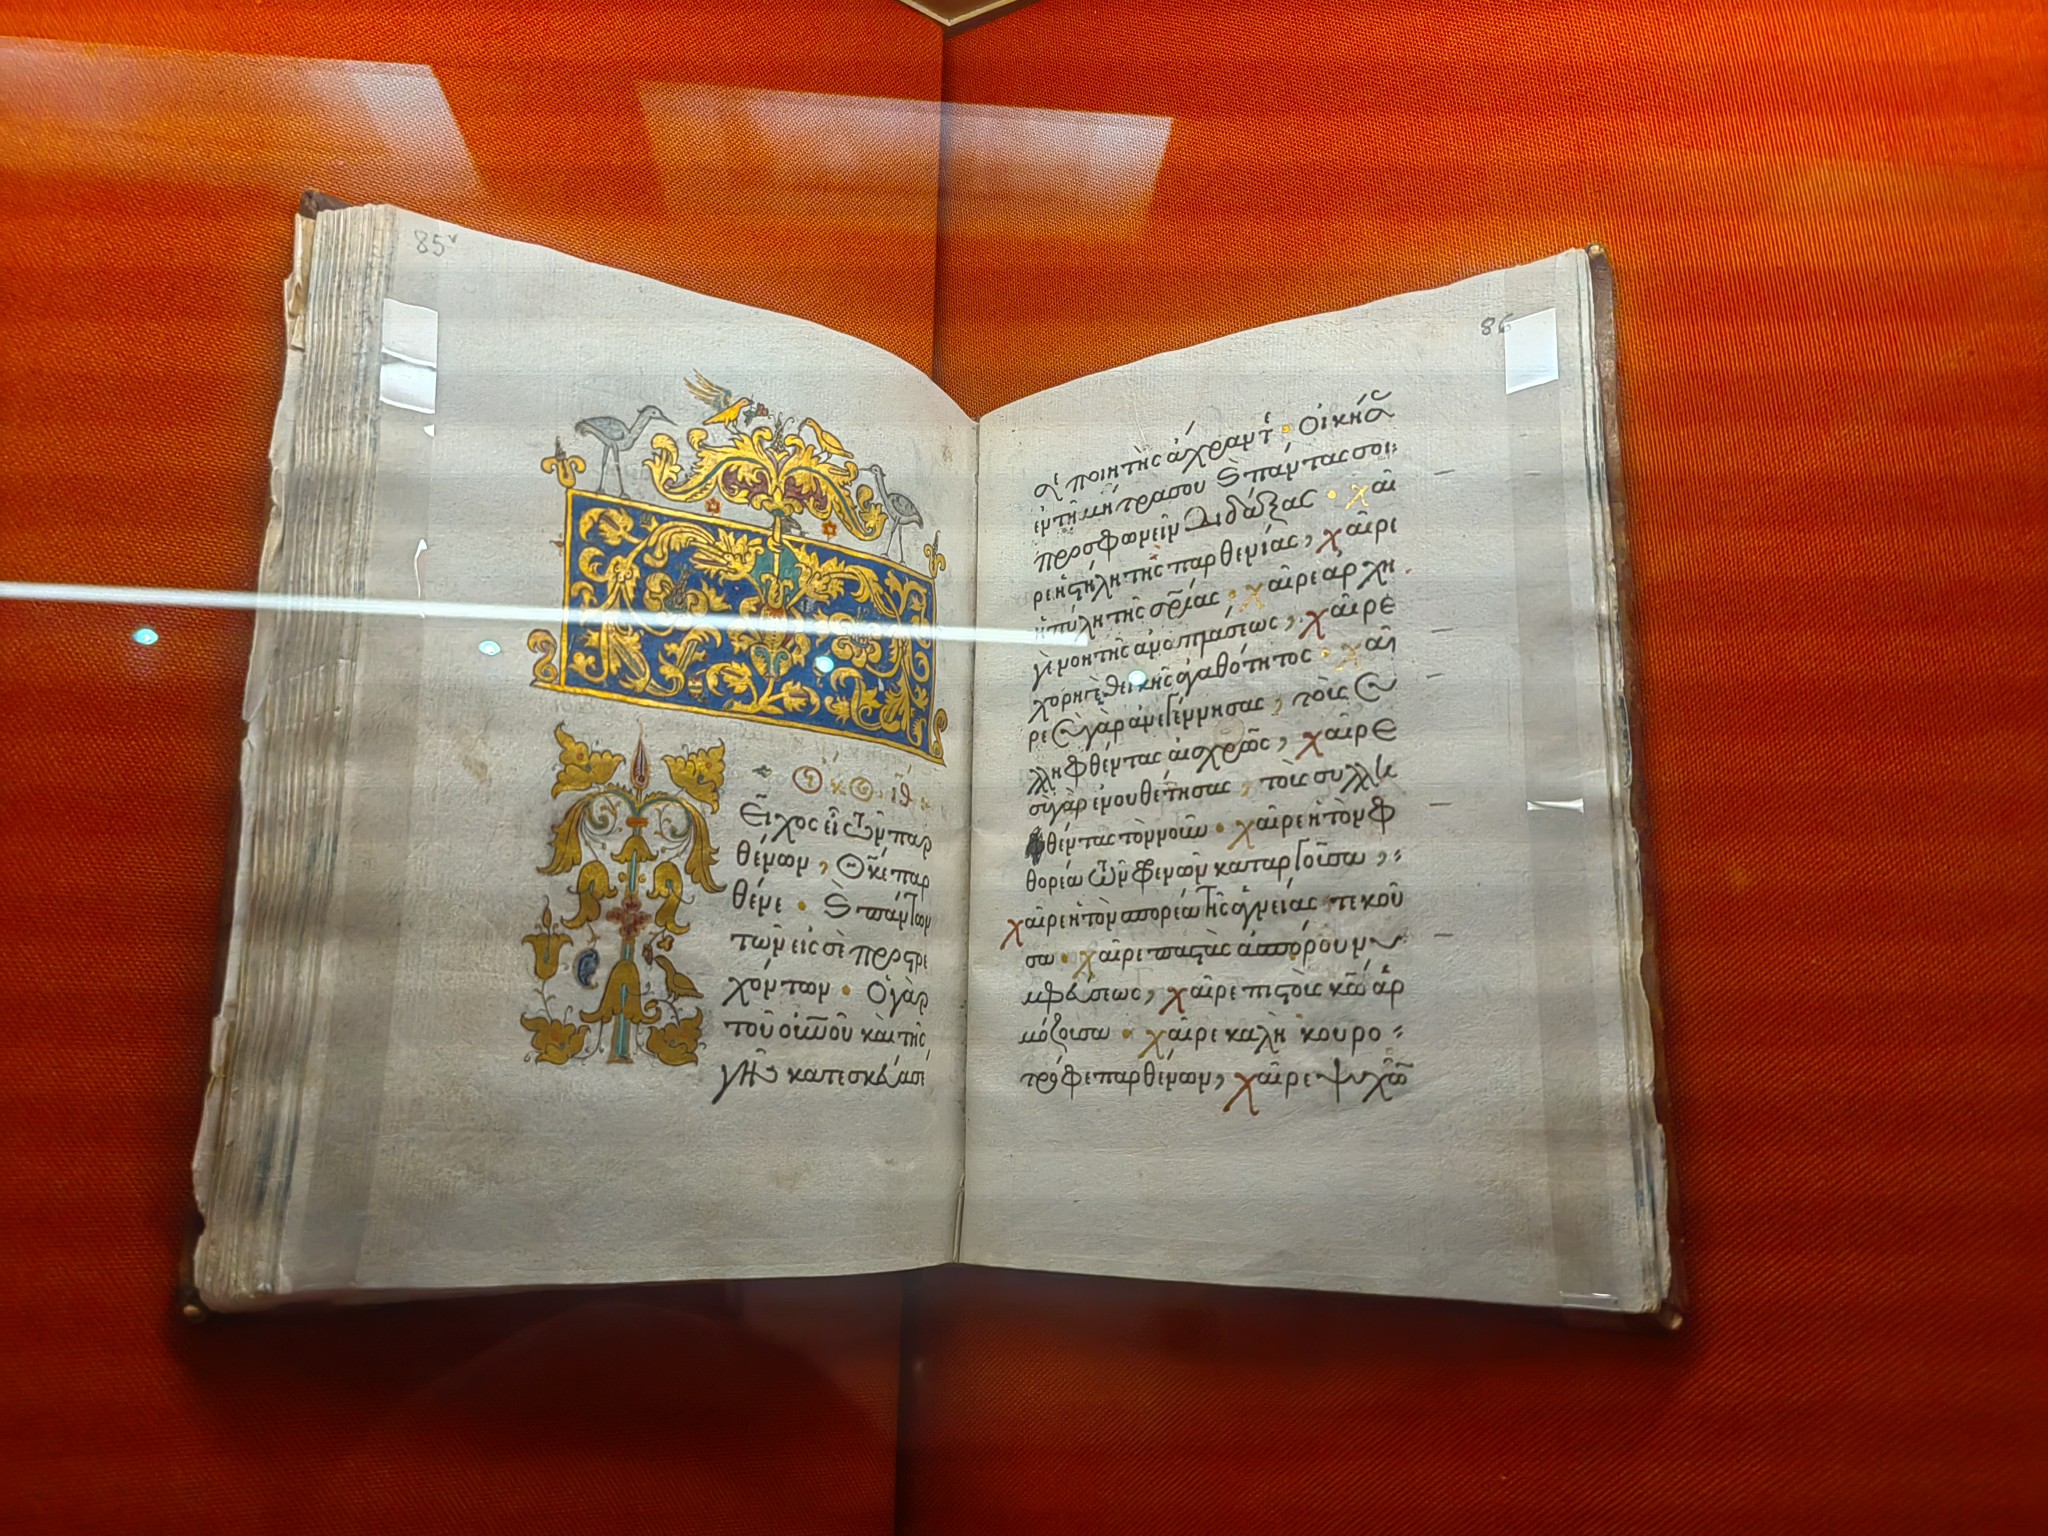 85v
Ὁ οἶκος ιθ
εῖχος εἶ τῶν παρ
θένων, Θκε παρ
θένε · καὶ πάντων
τῶν εἰς σὲ προστρε
χόντων · Ὁ γὰρ
τοῦ οὐνοῦ καὶ τῆς
γῆς κατεσκεύασέ
86
σε ποιητὴς ἄχραντε · οἰκήσας
ἐν τῇ μήτρα σου καὶ πάντας σοι
προσφωνεῖν διδάξας · χαῖ
ρε ἡ στήλη τῆς παρθενίας, χαῖρε
ἡ πύλη τῆς σρίας · χαῖρε ἀρχη
γὲ νοητῆς ἀναπλάσεως, χαῖρε
χορηγὲ θεϊκῆς ἀγαθότητος · χαῖ
ρε σὺ γὰρ ἀνεγέννησας, τοὺς συ
λληφθέντας αἰσχρῶς, χαῖρε
σὺ γὰρ ἐνουθέτησας, τοὺς συλλη
φθέντας τὸν νοῦν · χαῖρε ἡ τὸν φ
θορέα τῶν φρενῶν καταργοῦσα,
χαῖρε ἡ τὸν σπορέα τῆς ἁγνείας τεκοῦ
σα · χαῖρε παστὰς ἀσπόρου νυ
μφεύσεως, χαῖρε πιστοὺς κω ἁρ
μόζουσα · χαῖρε καλὴ κουρο
τρόφε παρθένων, χαῖρε ψυχῶν